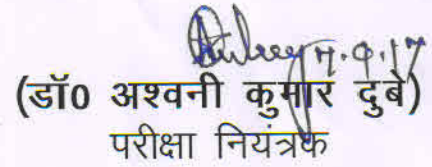 7.9.17
(डॉ0 अश्वनी कुमार दुबे)
परीक्षा नियंत्रक